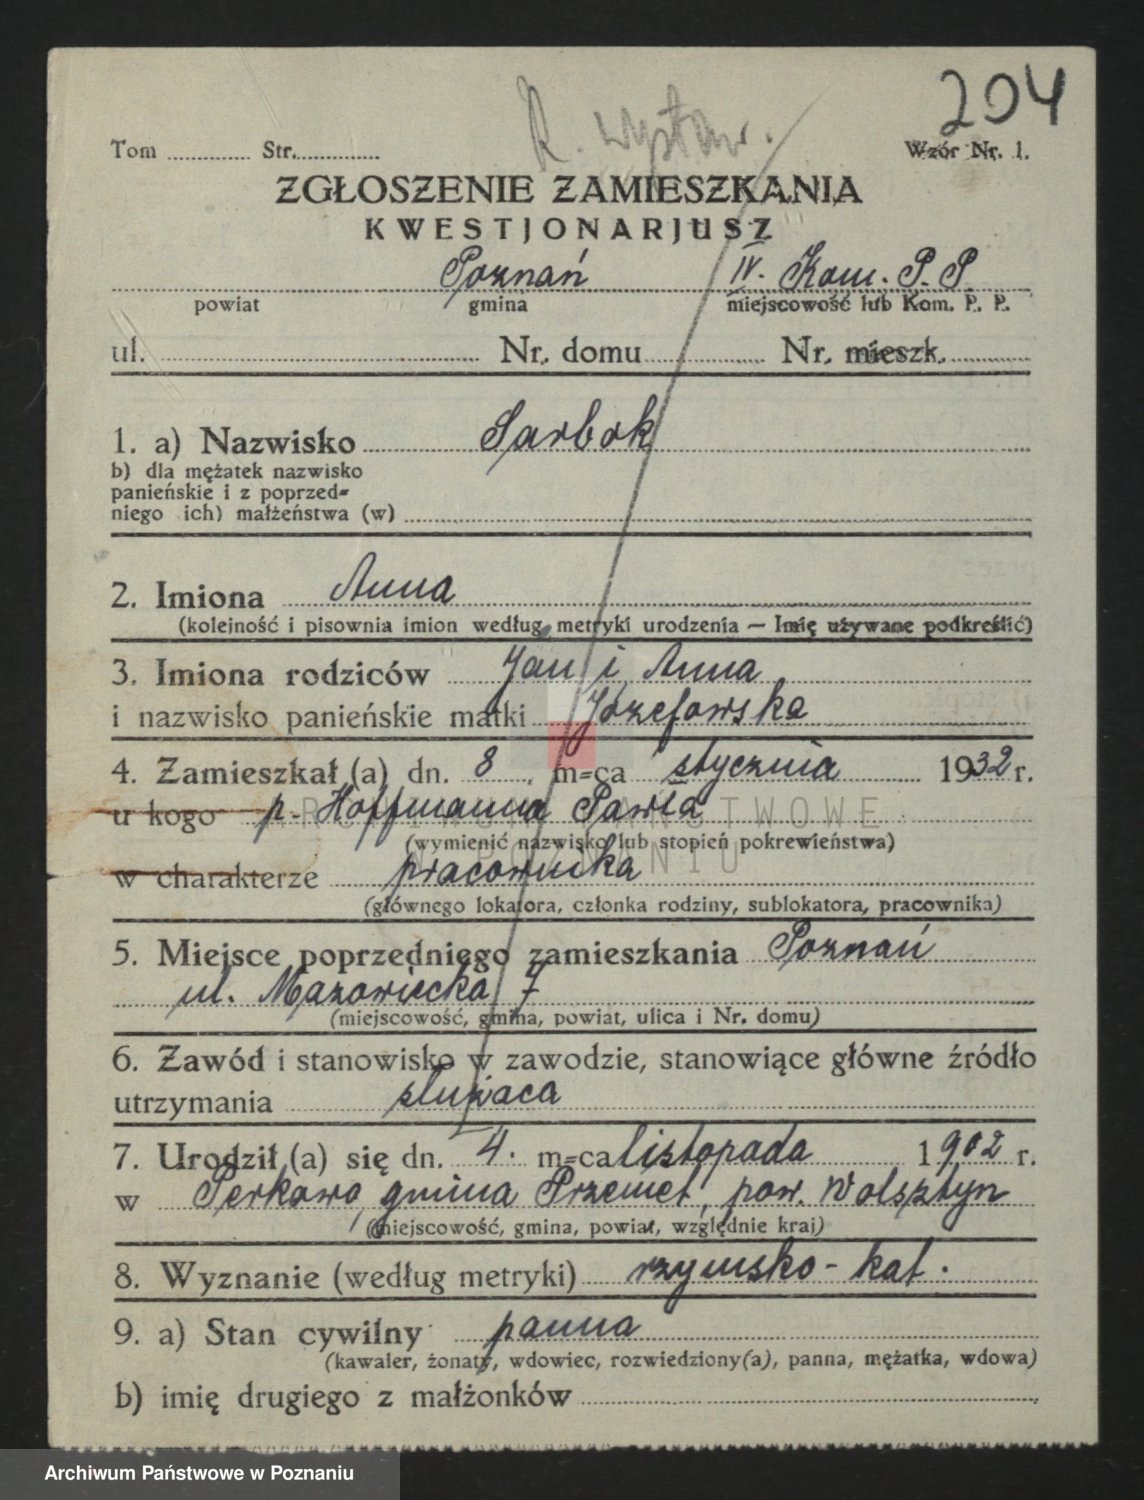 204
K. wystaw.
Tom ........ Str. ........ Wzór Nr. 1.
ZGŁOSZENIE ZAMIESZKANIA
KWESTJONARJUSZ
Poznań IV. Kom. P. P.
powiat gmina miejscowość lub Kom. P. P.
ul. ........ Nr. domu ........ Nr. mieszk. ........
1. a) Nazwisko Sarbok
b) dla mężatek nazwisko
panieńskie i z poprzed-
niego ich) małżeństwa (w)
2. Imiona Anna
(kolejność i pisownia imion według metryki urodzenia — Imię używane podkreślić)
3. Imiona rodziców Jan i Anna
i nazwisko panieńskie matki Józefowska
4. Zamieszkał (a) dn. 8 m-ca stycznia 1932 r.
u kogo p. Hoffmanna Pawła
ARCHIWUM PAŃSTWOWE
(wymienić nazwisko lub stopień pokrewieństwa)
W POZNANIU
w charakterze pracownika
(głównego lokatora, członka rodziny, sublokatora, pracownika)
5. Miejsce poprzedniego zamieszkania Poznań
ul. Mazowiecka 7
(miejscowość, gmina, powiat, ulica i Nr. domu)
6. Zawód i stanowisko w zawodzie, stanowiące główne źródło
utrzymania służaca
7. Urodził (a) się dn. 4. m-ca listopada 1902 r.
w Perkowo, gmina Przemet, pow. Wolsztyn
(miejscowość, gmina, powiat, względnie kraj)
8. Wyznanie (według metryki) rzymsko-kat.
9. a) Stan cywilny panna
(kawaler, żonaty, wdowiec, rozwiedziony(a), panna, mężatka, wdowa)
b) imię drugiego z małżonków
Archiwum Państwowe w Poznaniu